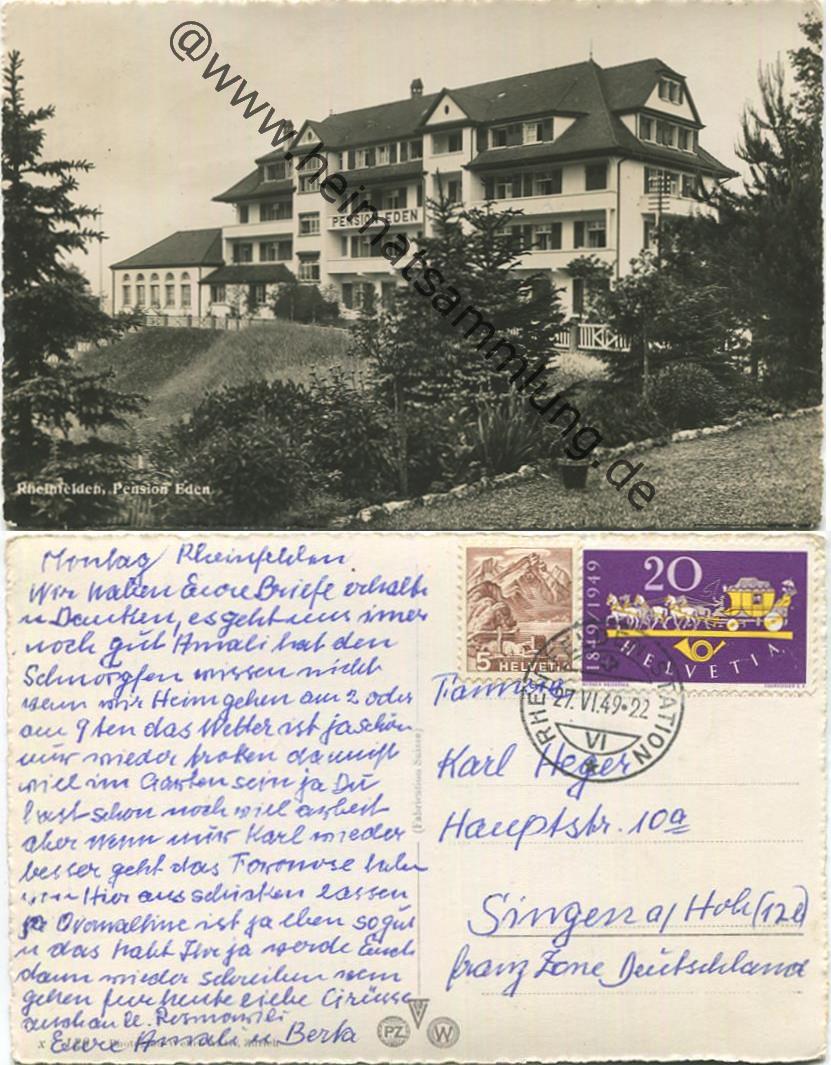 @www.heimatsammlung.de
PENSION EDEN
Rheinfelden, Pension Eden
Montag Rheinfelden.
Wir haben Eure Briefe erhalte
u Danken, es geht uns imer
noch gut Amali hat den
wissen nicht
wenn wir Heim gehen am 2 oder
am 9ten das Wetter ist ja schön
nur wieder troken damist
viel im Garten sein ja Du
hast schon noch viel arbeit
aber wenn nur Karl wieder
besser geht das haben
wir Hier aus schicken lassen
ja Ovomaltine ist ja eben so gut
u das habt Ihr ja werde Euch
dann wieder schreiben wen
gehen fur heute liebe Grüsse
auch an
Eure Amali u Berta
5 HELVETIA
1849/1949
20
HELVETIA
27.VI.49-22
VI
Karl Heger
Hauptstr. 10a
Singen a/ Hoh
franz Zone Deutschland
(Fabrication Suisse)
PZ
W